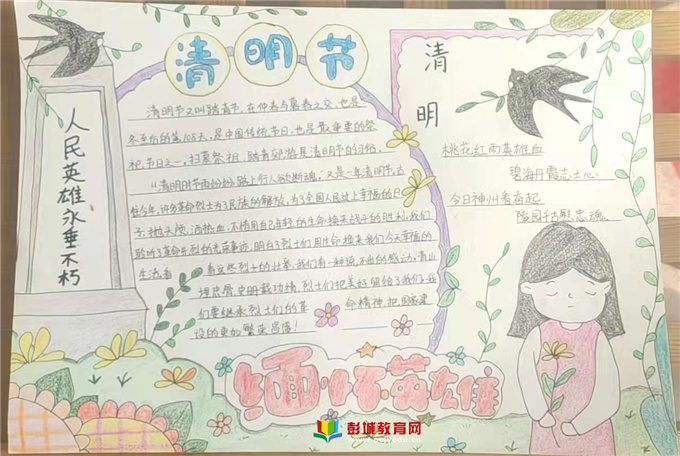 清明节
人民英雄永垂不朽
清明节又叫踏青节,在仲春与暮春之交,也是
冬至后的第108天,是中国传统节日,也是最重要的祭
祀节日之一,扫墓祭祖,踏青郊游是清明节的习俗。
“清明时节雨纷纷,路上行人欲断魂”又是一年清明节,古
往今年,许多革命烈士为了民族的解放,为了全国人民过上幸福的日
子,抛头颅,洒热血,不惜用自己年轻的生命换来战斗的胜利,我们
聆听了革命先烈的光荣事迹,明白了烈士们用生命换来我们今天幸福的
生活,看
看这些烈士的壮举,我们有一种说不出的感动,青山
埋忠骨,史册载功绩,烈士们把美好留给了我们,我
们要继承烈士们的革命精神,把国家建
设的更加繁荣昌盛!
清明
桃花红雨英雄血
碧海丹霞志士心
今日神州看奋起
陵园千古慰忠魂
缅怀英雄
彭城教育网